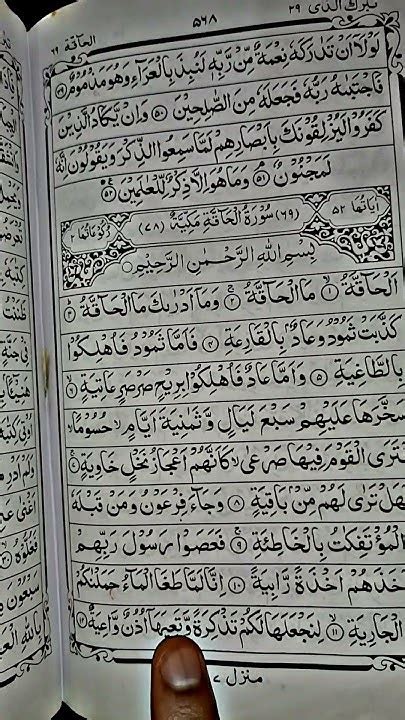 تبرك الذى ٢٩
٥٦٨
الحاقة ٦٩
لَوْلَاۤ اَنْ تَدٰرَكَهٗ نِعْمَةٌ مِّنْ رَّبِّهٖ لَنُبِذَ بِالْعَرَآءِ وَهُوَ مَذْمُوْمٌ ﴿۴۹﴾
فَاجْتَبٰىهُ رَبُّهٗ فَجَعَلَهٗ مِنَ الصّٰلِحِيْنَ ﴿۵۰﴾ وَاِنْ يَّكَادُ الَّذِيْنَ
كَفَرُوْا لَيُزْلِقُوْنَكَ بِاَبْصَارِهِمْ لَمَّا سَمِعُوا الذِّكْرَ وَيَقُوْلُوْنَ اِنَّهٗ
لَمَجْنُوْنٌ ﴿۵۱﴾ وَمَا هُوَ اِلَّا ذِكْرٌ لِّلْعٰلَمِيْنَ ﴿۵۲﴾
اٰيَاتُهَا ٥٢
(٦٩) سُوْرَةُ الْحَآقَّةِ مَكِّيَّةٌ (٧٨)
رُكُوْعَاتُهَا ٢
بِسْمِ اللهِ الرَّحْمٰنِ الرَّحِيْمِ
اَلْحَآقَّةُ ﴿۱﴾ مَا الْحَآقَّةُ ﴿۲﴾ وَمَاۤ اَدْرٰىكَ مَا الْحَآقَّةُ ﴿۳﴾
كَذَّبَتْ ثَمُوْدُ وَعَادٌۢ بِالْقَارِعَةِ ﴿۴﴾ فَاَمَّا ثَمُوْدُ فَاُهْلِكُوْا
بِالطَّاغِيَةِ ﴿۵﴾ وَاَمَّا عَادٌ فَاُهْلِكُوْا بِرِيْحٍ صَرْصَرٍ عَاتِيَةٍ ﴿۶﴾
سَخَّرَهَا عَلَيْهِمْ سَبْعَ لَيَالٍ وَّثَمٰنِيَةَ اَيَّامٍ حُسُوْمًا
فَتَرَى الْقَوْمَ فِيْهَا صَرْعٰى كَاَنَّهُمْ اَعْجَازُ نَخْلٍ خَاوِيَةٍ ﴿۷﴾
فَهَلْ تَرٰى لَهُمْ مِّنْۢ بَاقِيَةٍ ﴿۸﴾ وَجَآءَ فِرْعَوْنُ وَمَنْ قَبْلَهٗ
وَالْمُؤْتَفِكٰتُ بِالْخَاطِئَةِ ﴿۹﴾ فَعَصَوْا رَسُوْلَ رَبِّهِمْ
فَاَخَذَهُمْ اَخْذَةً رَّابِيَةً ﴿۱۰﴾ اِنَّا لَمَّا طَغَا الْمَآءُ حَمَلْنٰكُمْ
فِى الْجَارِيَةِ ﴿۱۱﴾ لِنَجْعَلَهَا لَكُمْ تَذْكِرَةً وَّتَعِيَهَاۤ اُذُنٌ وَّاعِيَةٌ ﴿۱۲﴾
منزل ٧